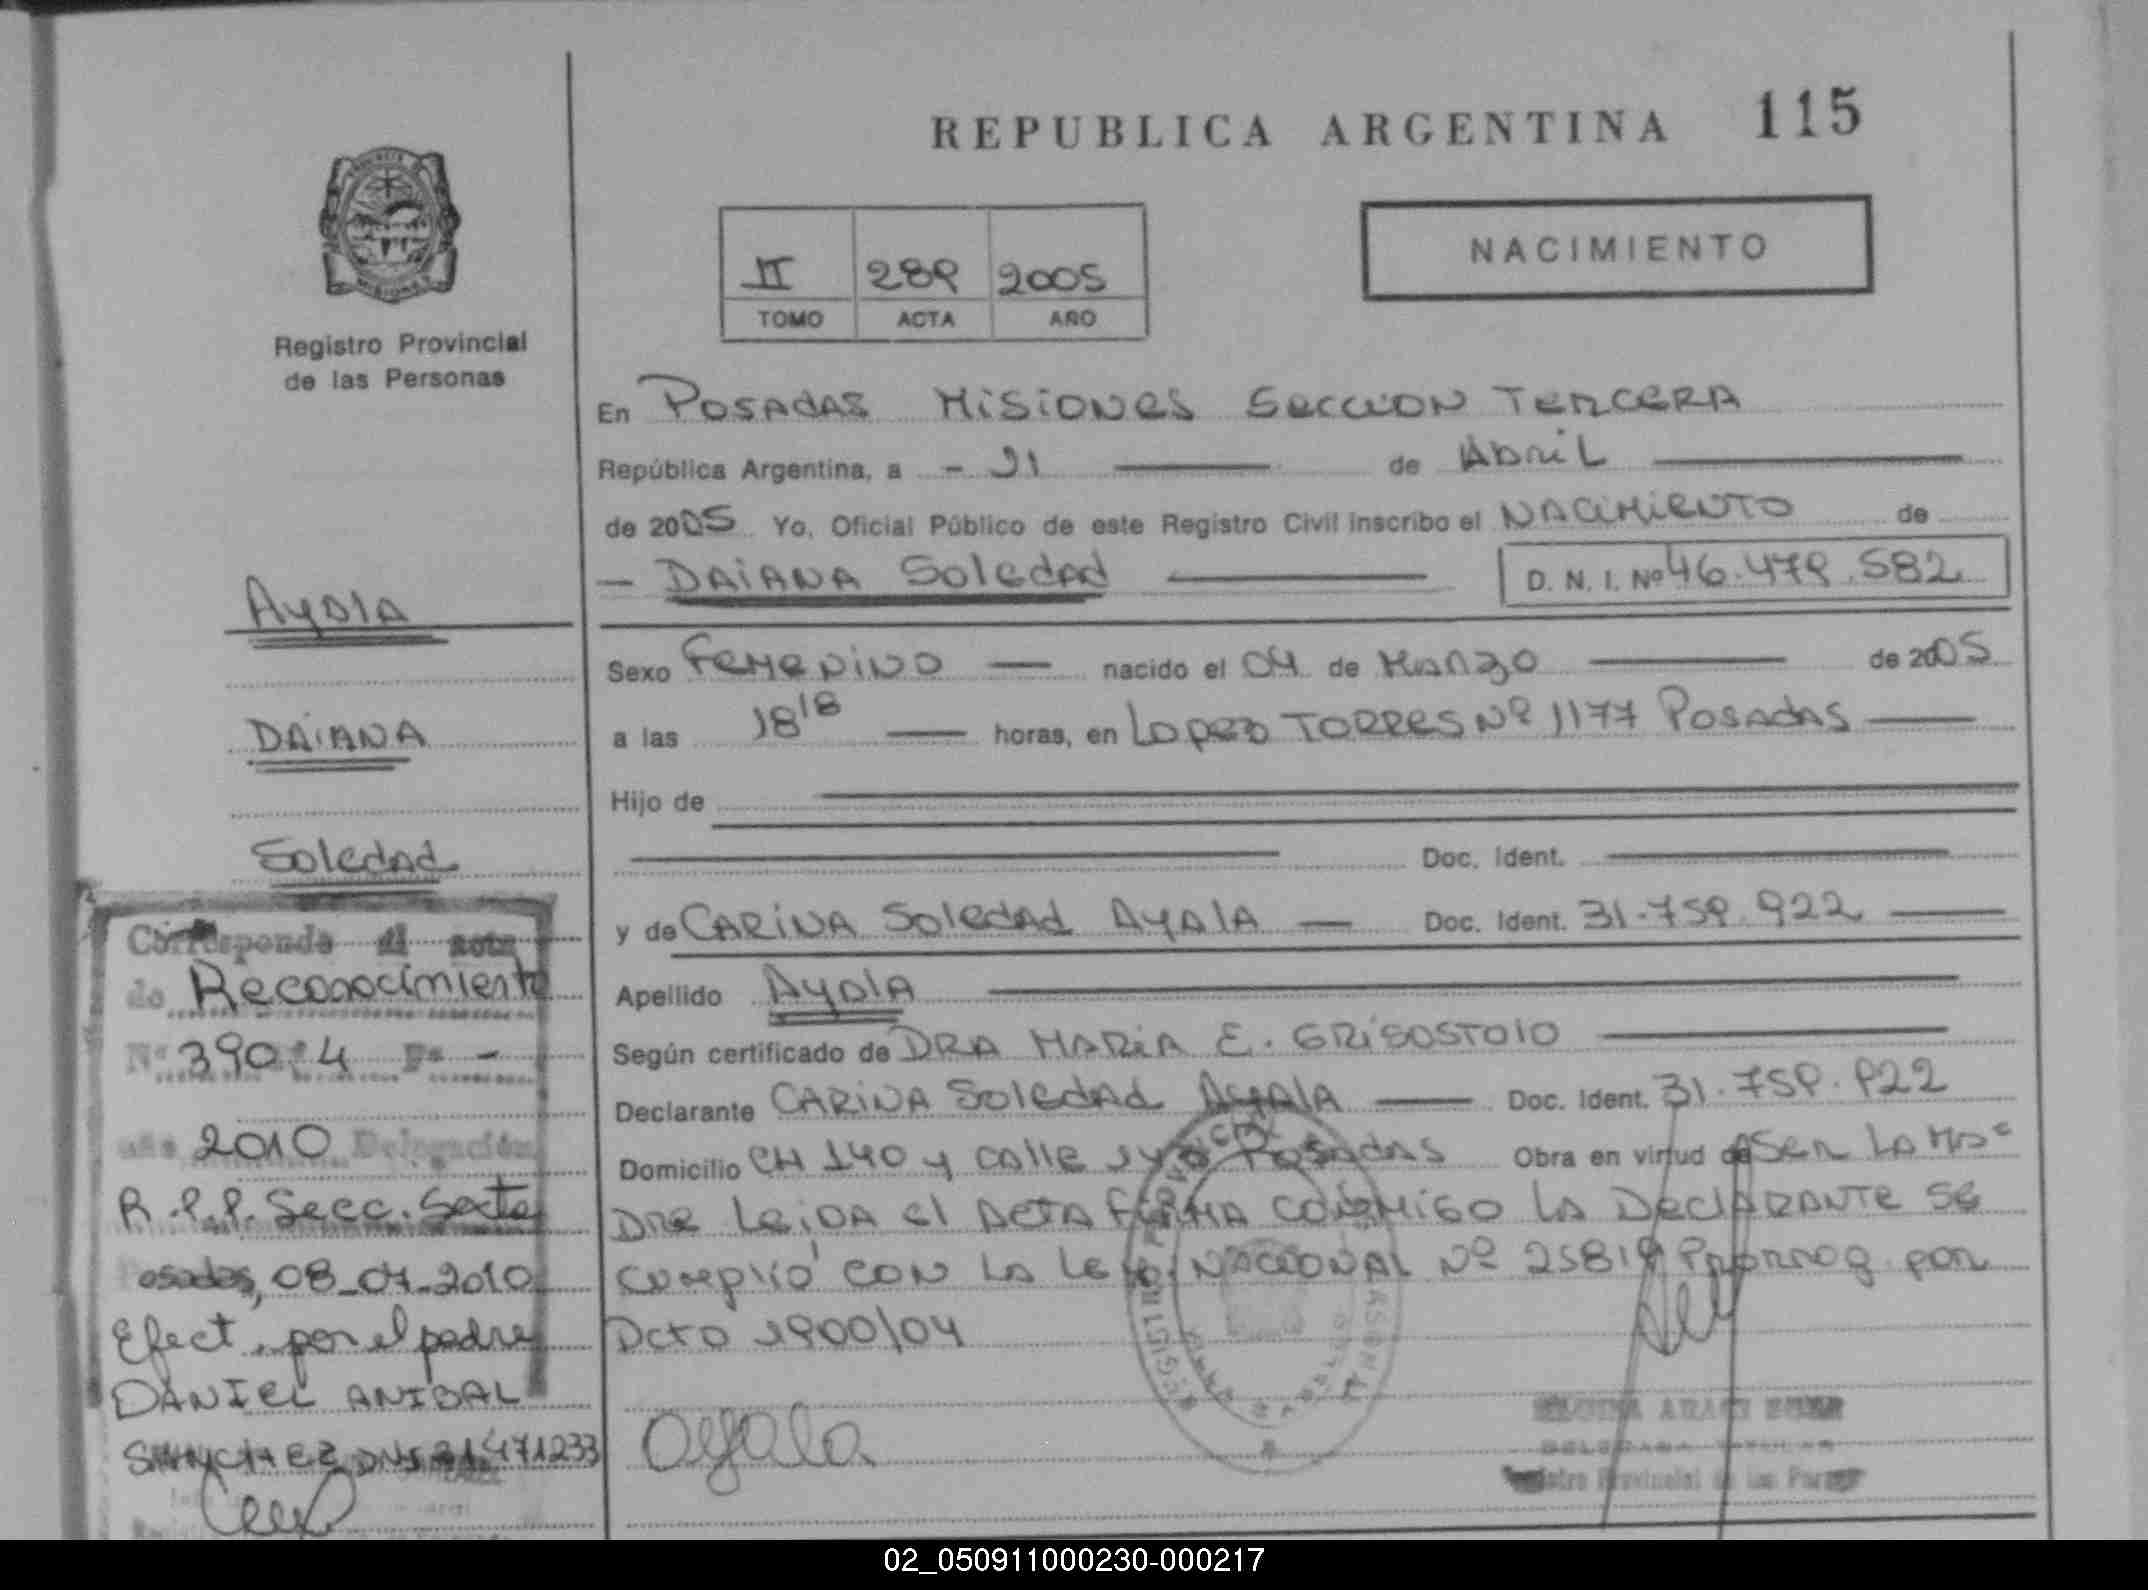 REPUBLICA ARGENTINA 115
NACIMIENTO
II 289 2005
TOMO ACTA AÑO
Registro Provincial
de las Personas
En POSADAS MISIONES SECCION TERCERA
República Argentina, a - 21 de ABRIL
de 2005 Yo, Oficial Público de este Registro Civil inscribo el NACIMIENTO de
- DAIANA SOLEDAD
D. N. I. Nº 46.479.582
Sexo FEMENINO nacido el 04 de MARZO de 2005
a las 18 18 horas, en LOPEZ TORRES Nº 1177 POSADAS
Hijo de
Doc. Ident.
y de CARINA SOLEDAD AYALA Doc. Ident. 31.759.922
Apellido AYALA
Según certificado de DRA MARIA E.
Declarante CARINA SOLEDAD AYALA Doc. Ident. 31.759.922
Domicilio CH 140 y CALLE POSADAS Obra en virtud de SER LA MA=
DRE LEIDA el ACTA FIRMA CONMIGO LA DECLARANTE SE
CUMPLIÓ CON LA LEY NACIONAL Nº 25819 Prorrog por
Dcto 1900/04
Ayala
AYALA
DAIANA
SOLEDAD
Corresponde al acta
de Reconocimiento
Nº 390 tº 4 Fº -
año 2010 Delegación
R.P.P. Secc. Sexta
Posadas, 08-07-2010
Efect. por el padre
DANIEL ANIBAL
SANCHEZ DNI 31.471233
02_050911000230-000217